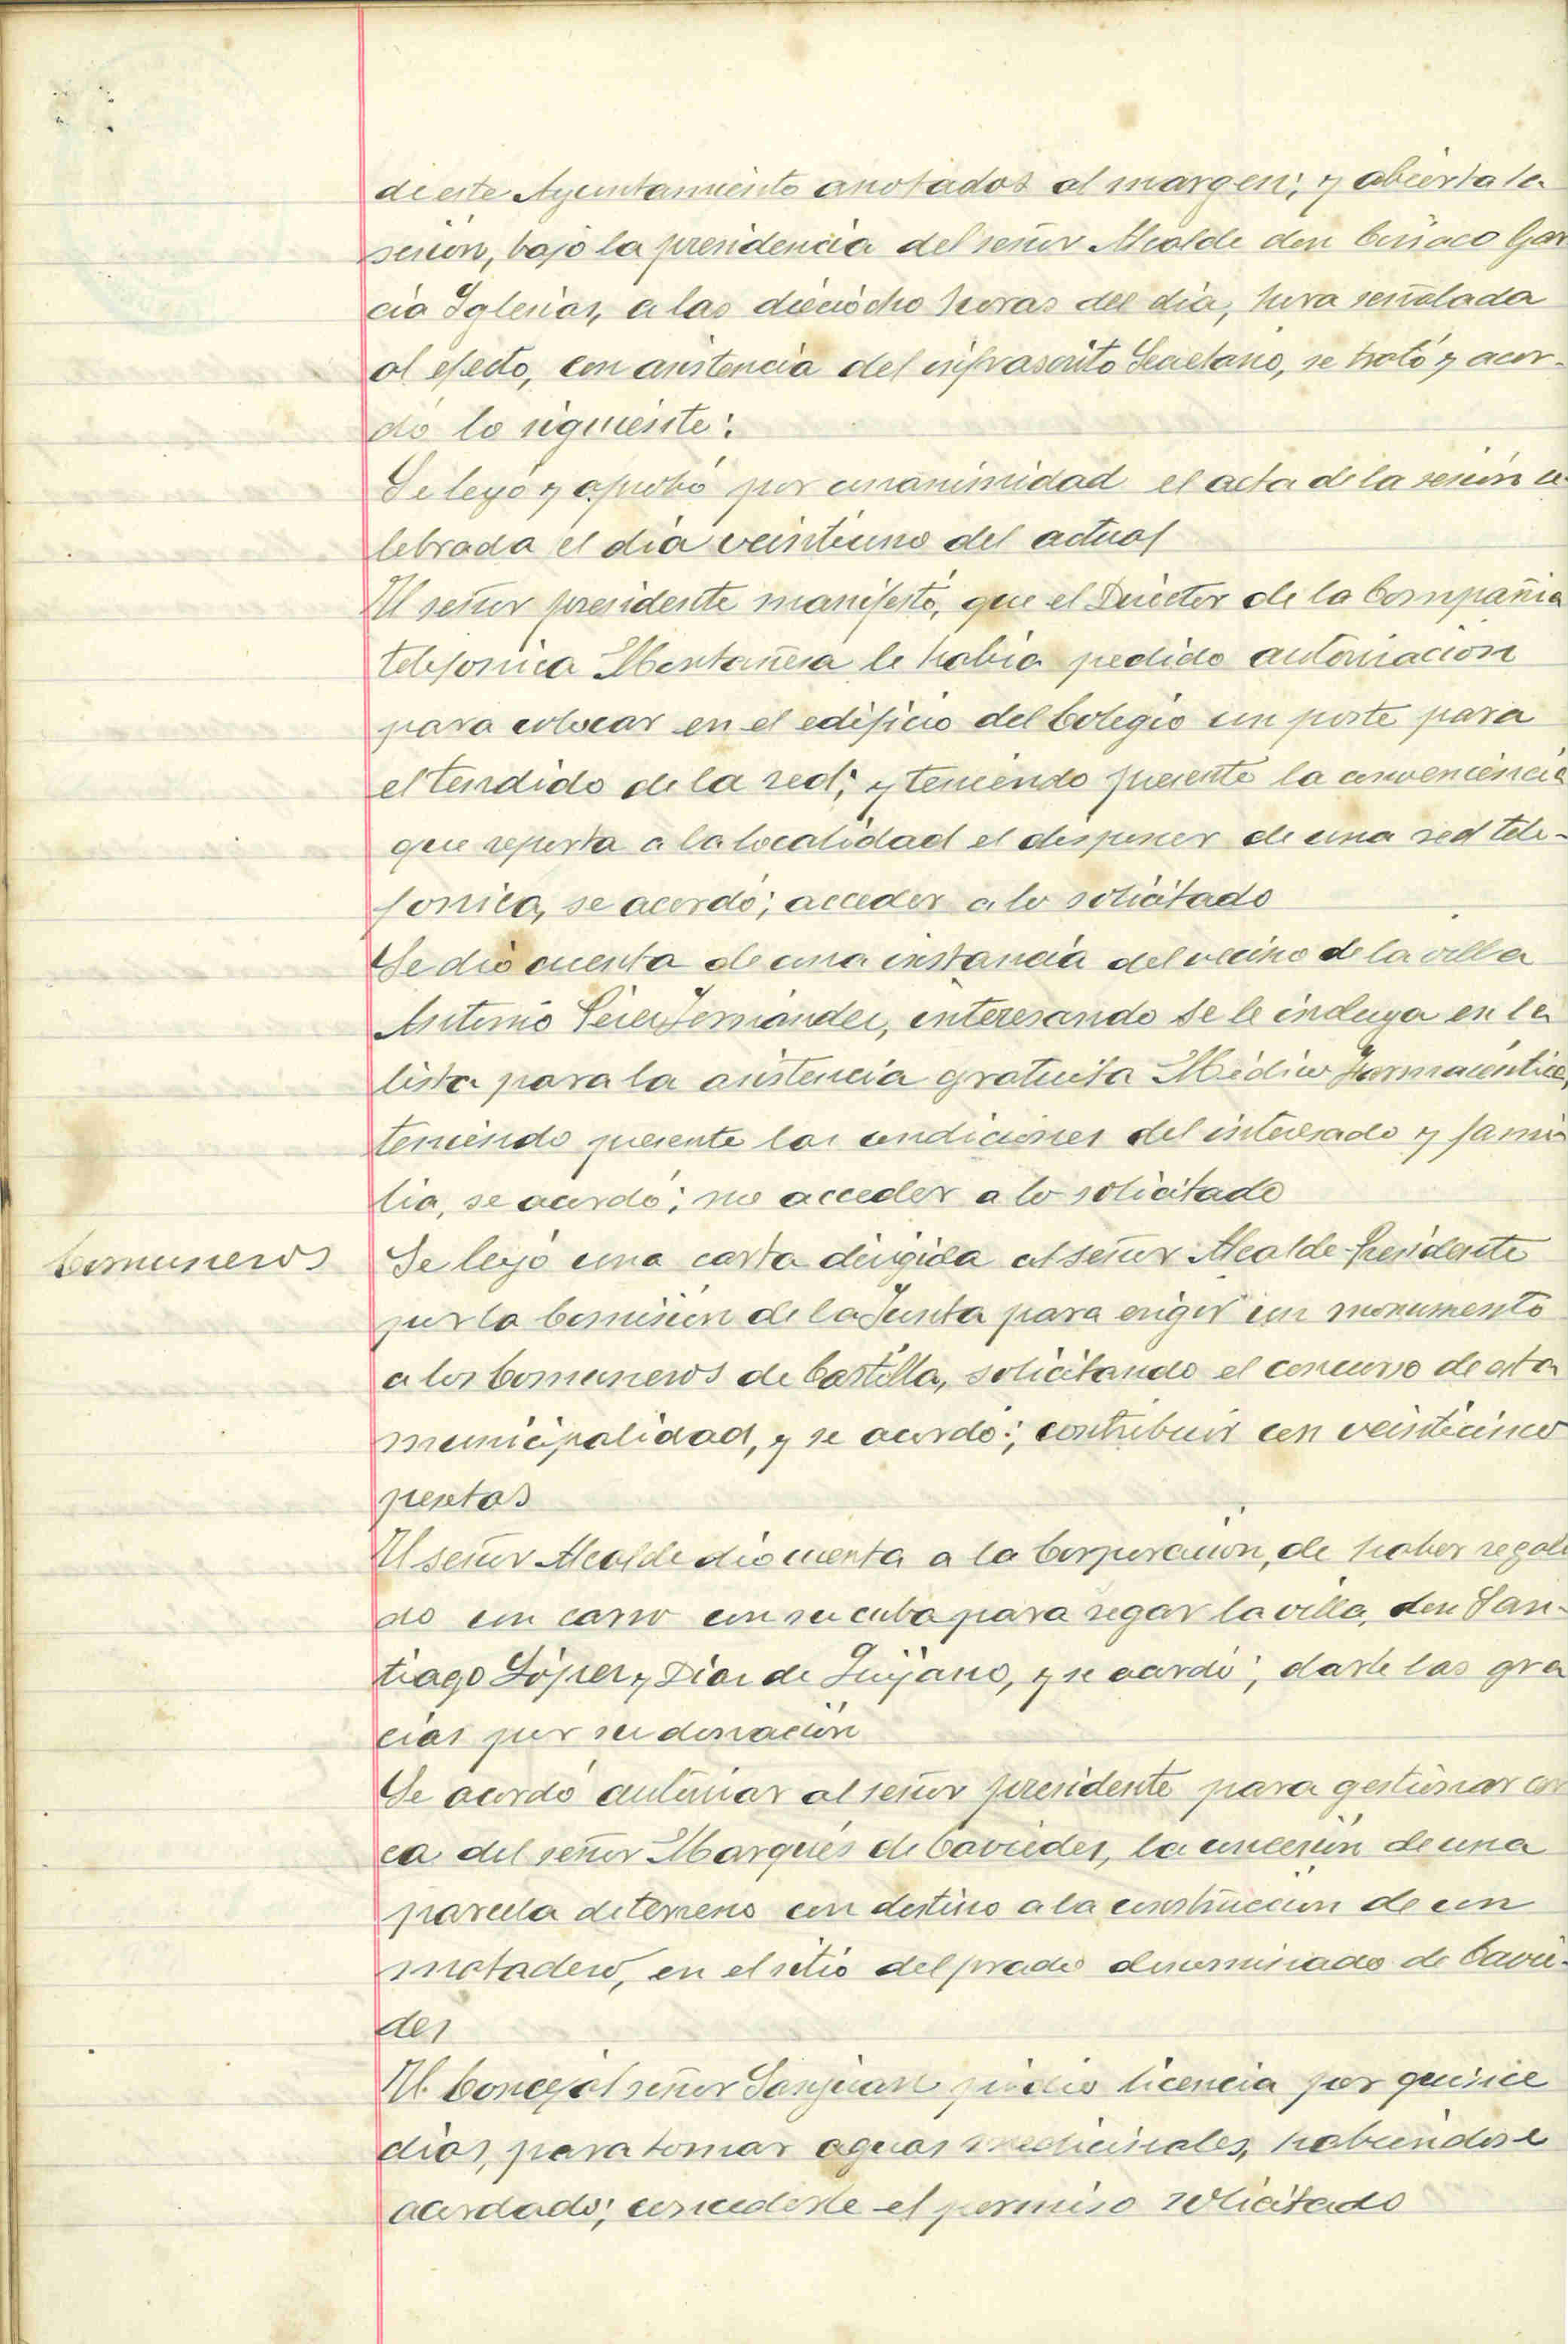 de este Ayuntamiento anotados al margen; y abierta la
sesión, bajo la presidencia del señor Alcalde don Ciriaco Gar
cia Iglesias, a las dieciocho horas del dia, hora señalada
al efecto, con asistencia del infrascrito Secretario, se trató y acor-
dó lo siguiente:
Se leyó y aprobó por unanimidad el acta de la sesión ce-
lebrada el dia veintiuno del actual
El señor presidente manifestó, que el Director de la Compañia
telefonica Montañesa le habia pedido autorización
para colocar en el edificio del Colegio un poste para
el tendido de la red; y teniendo presente la conveniencia
que reporta a la localidad el disponer de una red tele-
fonica, se acordó; acceder a lo solicitado
Se dió cuenta de una instancia del vecino de la villa
Antonio Fernández, interesando se le incluya en la
lista para la asistencia gratuita Médico Farmacéutica,
teniendo presente las condiciones del interesado y fami
lia, se acordó; no acceder a lo solicitado
Comuneros
Se leyó una carta dirigida al señor Alcalde-Presidente
por la Comisión de la Junta para erigir un monumento
a los Comuneros de Castilla, solicitando el concurso de esta
municipalidad, y se acordó; contribuir con veinticinco
pesetas
El señor Alcalde dio cuenta a la Corporación, de haber regala
do un carro con su cuba para regar la villa, don San-
tiago López y Diaz de Quijano, y se acordó; darle las gra
cias por su donación
Se acordó autorizar al señor presidente para gestionar cer
ca del señor Marqués de Caviedes, la concesión de una
parcela de terreno con destino a la construcción de un
matadero, en el sitio del prado denominado de Cavie-
des
El Concejal señor Sanjuan pidió licencia por quince
dias, para tomar aguas medicinales, habiendose
acordado; concederle el permiso solicitado